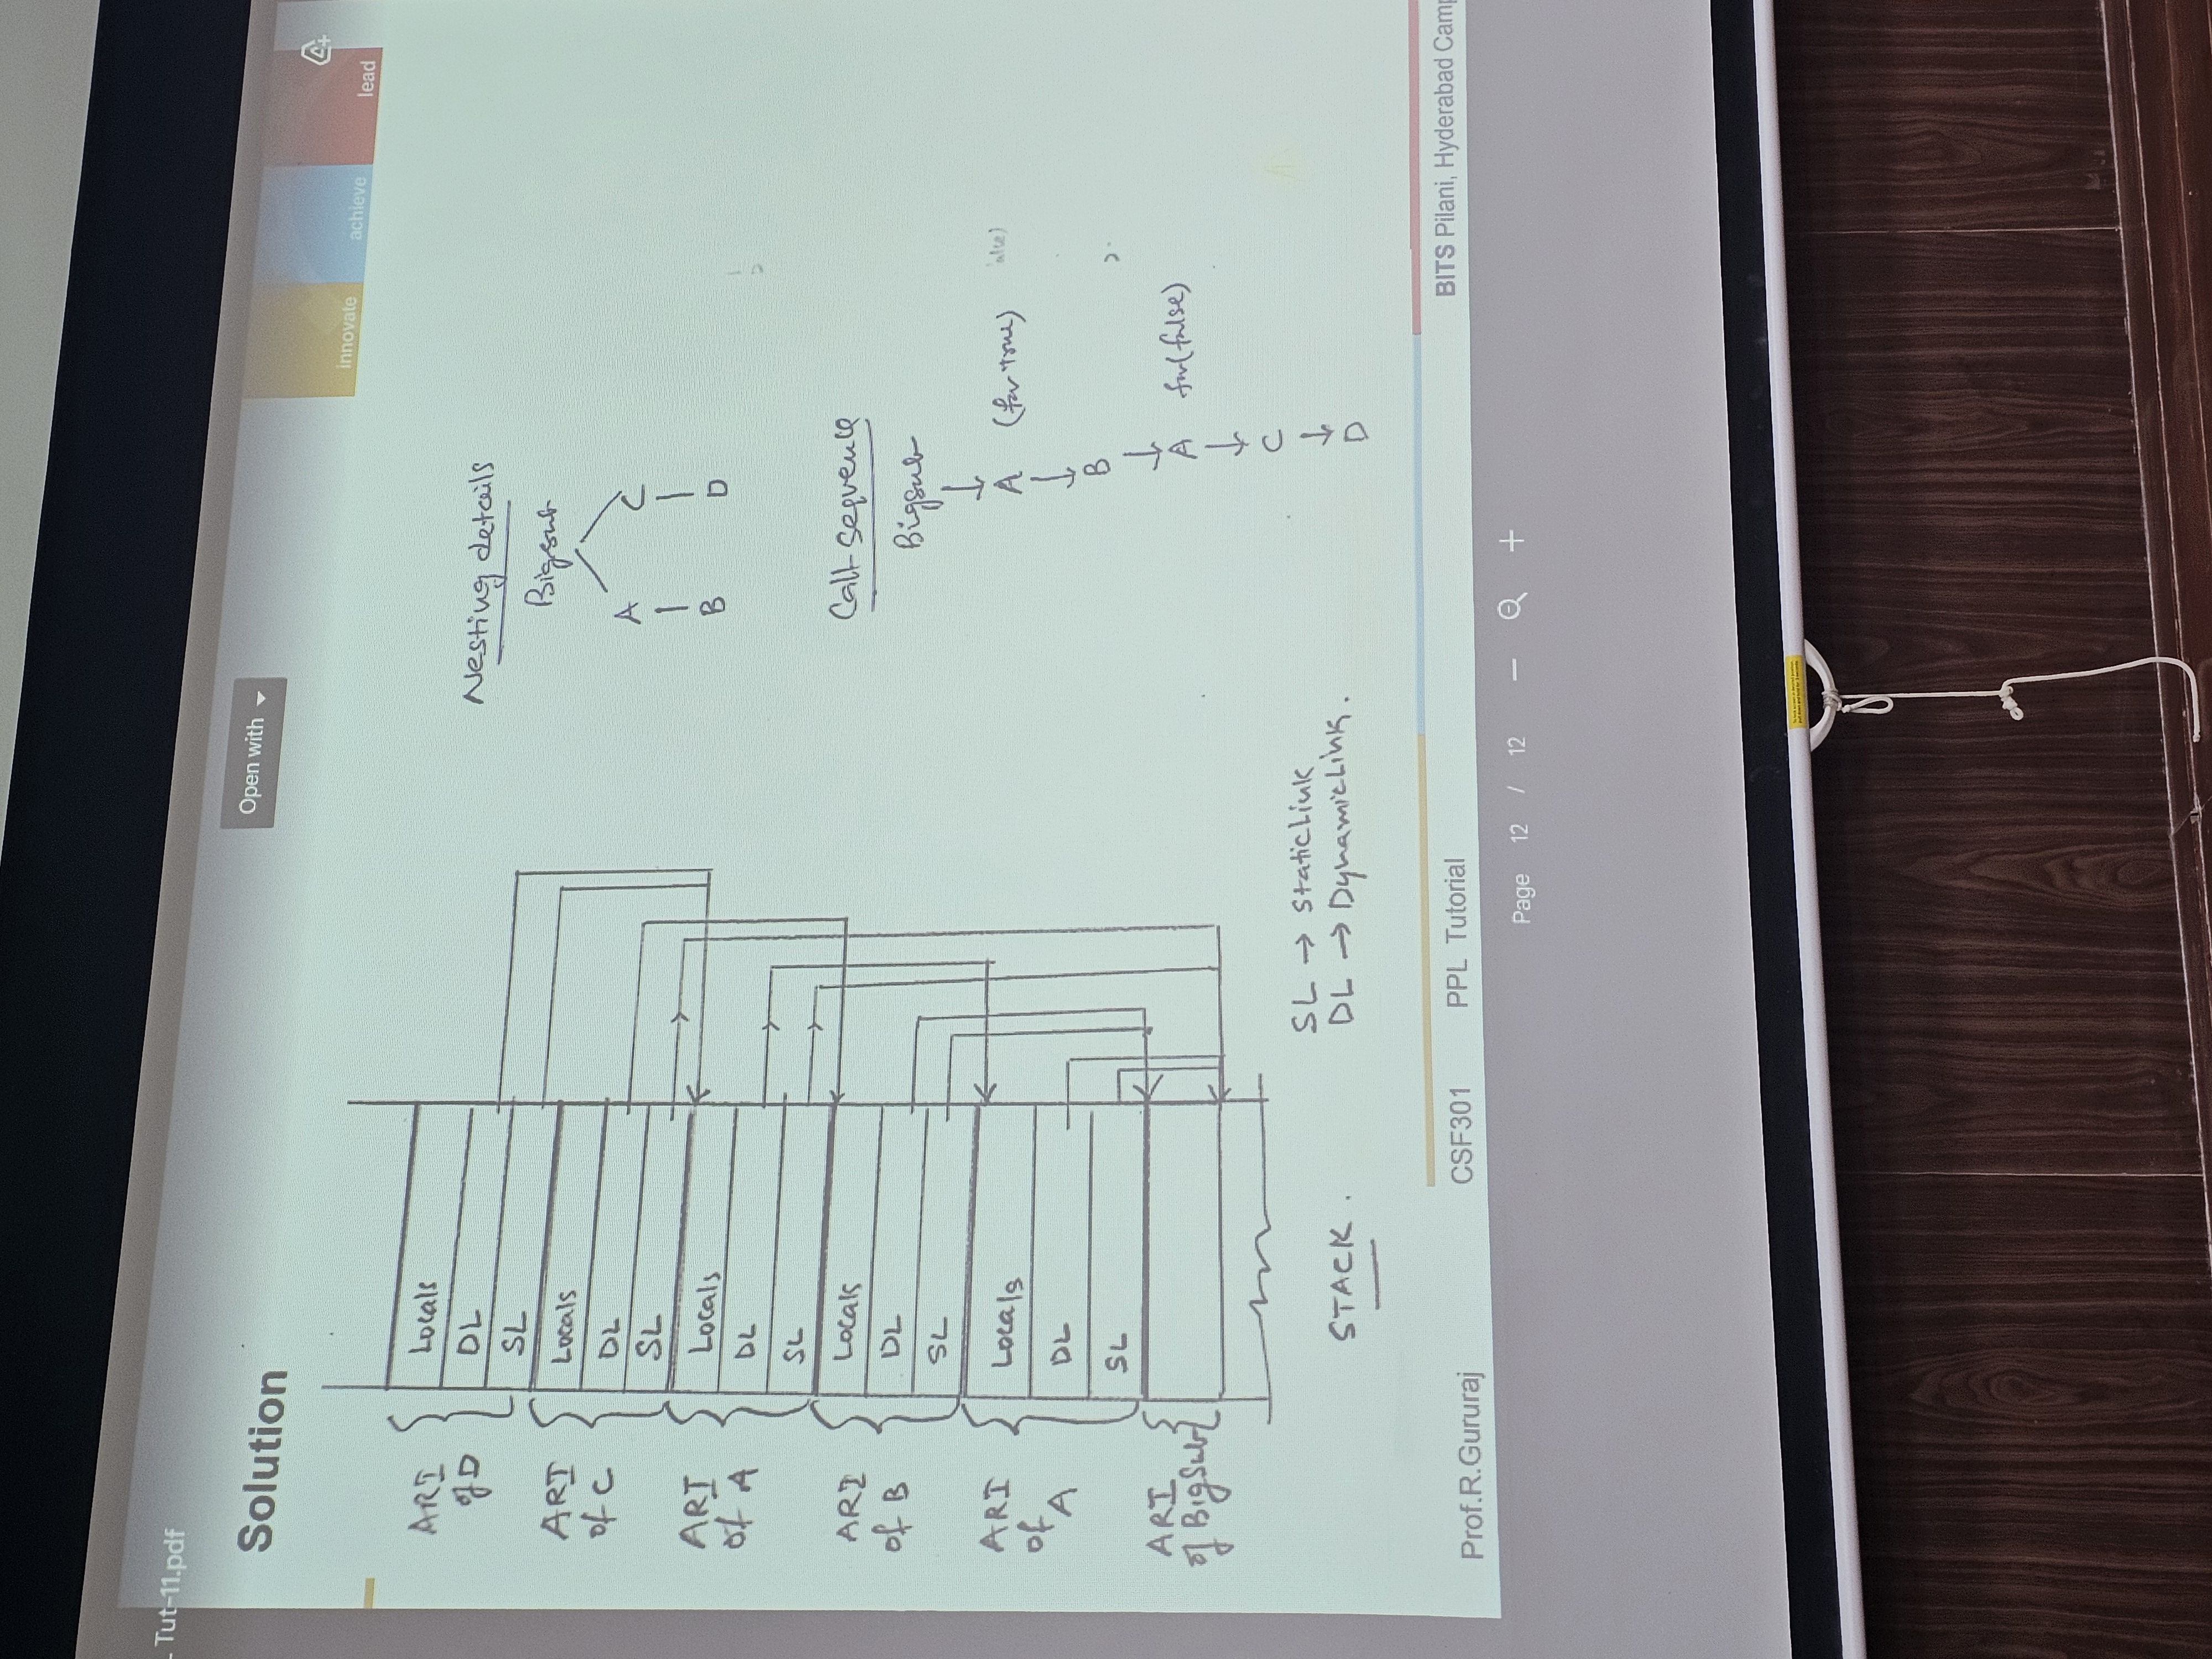 Tut-11.pdf
Solution
Open with
innovate
achieve
lead
ARI
of D
Locals
DL
SL
ARI
of C
Locals
DL
SL
ARI
of A
Locals
DL
SL
ARI
of B
Locals
DL
SL
ARI
of
A
Locals
DL
SL
ARI
of BigSub
STACK.
SL → StaticLink
DL → DynamicLink.
Nesting details
Bigsub
A C
B D
Call sequence
Bigsub
A (for true)
B
A for(false)
C
D
Prof.R.Gururaj
CSF301 PPL Tutorial
BITS Pilani, Hyderabad Camp
Page 12 / 12